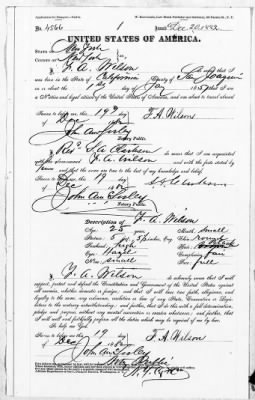 No. 4566 1 Issued Dec 20 1882
UNITED STATES OF AMERICA.
STATE OF New York
COUNTY OF New York
I, F. A. Wilson
was born in the State of California, County of San Joaquin
on or about the 1st day of Jan 1857
a Native and loyal citizen of the United States of America, and am about to travel abroad
Sworn to before me, this 19th day F. A. Wilson
of Dec 1882
Notary Public.
am acquainted
with the above-named F. A. Wilson and with the facts stated by
him and that the same are true to the best of my knowledge and belief.
Sworn to before me, this 19 day
of Dec 1882
Notary Public.
Description of F. A. Wilson
Age: 25 years Mouth: small
Stature: 5 feet inches Eng. Chin: round
Forehead: high Hair:
Eyes: Hazel Complexion: fair
Nose: small Face: full
I, F. A. Wilson do solemnly swear that I will
support, protect and defend the Constitution and Government of the United States against
all enemies, whether domestic or foreign; and that I will bear true faith, allegiance, and
loyalty to the same, any ordinance, resolution or law of any State, Convention or Legis-
lature to the contrary notwithstanding; and further, that I do this with a full determination,
pledge, and purpose, without any mental reservation or evasion whatsoever; and further, that
I will well and faithfully perform all the duties which may be required of me by law.
So help me God.
Sworn to before me, this 19 day F. A. Wilson
of Dec 1882
Notary Public
N. Y. Co.